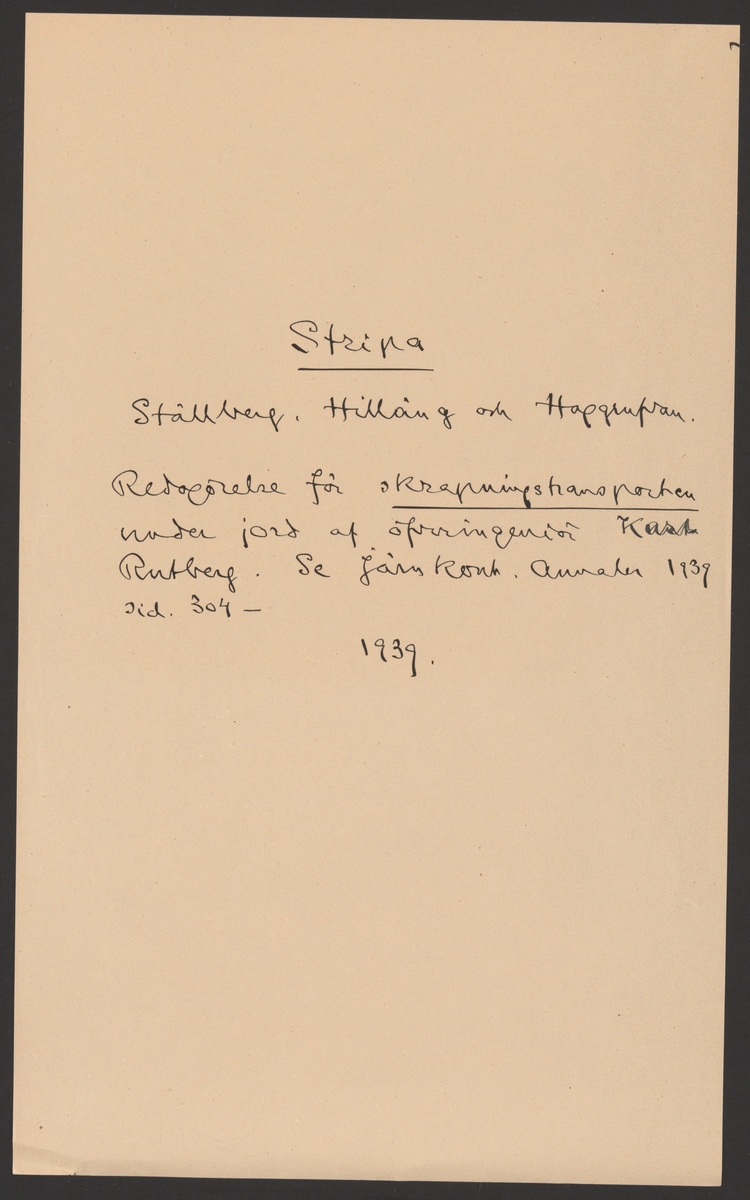 Stripa
Ställberg, Hillång och Haggrufvan.
Redogörelse för skrapningstransporten
under jord af öfveringeniör Karl
Rutberg. Se Järnkont. Annaler 1939
sid. 304 –
1939.